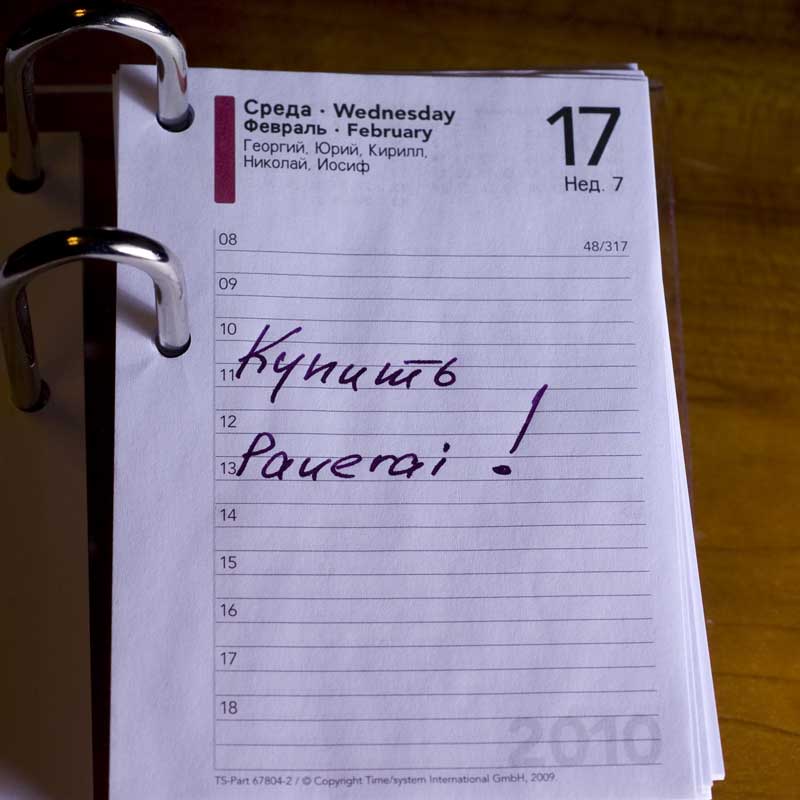 Среда · Wednesday
Февраль · February
Георгий, Юрий, Кирилл,
Николай, Иосиф
17
Нед. 7
08
48/317
09
10
Купить
11
12
Panerai !
13
14
15
16
17
18
2010
TS-Part 67804-2 / © Copyright Time/system International GmbH, 2009.